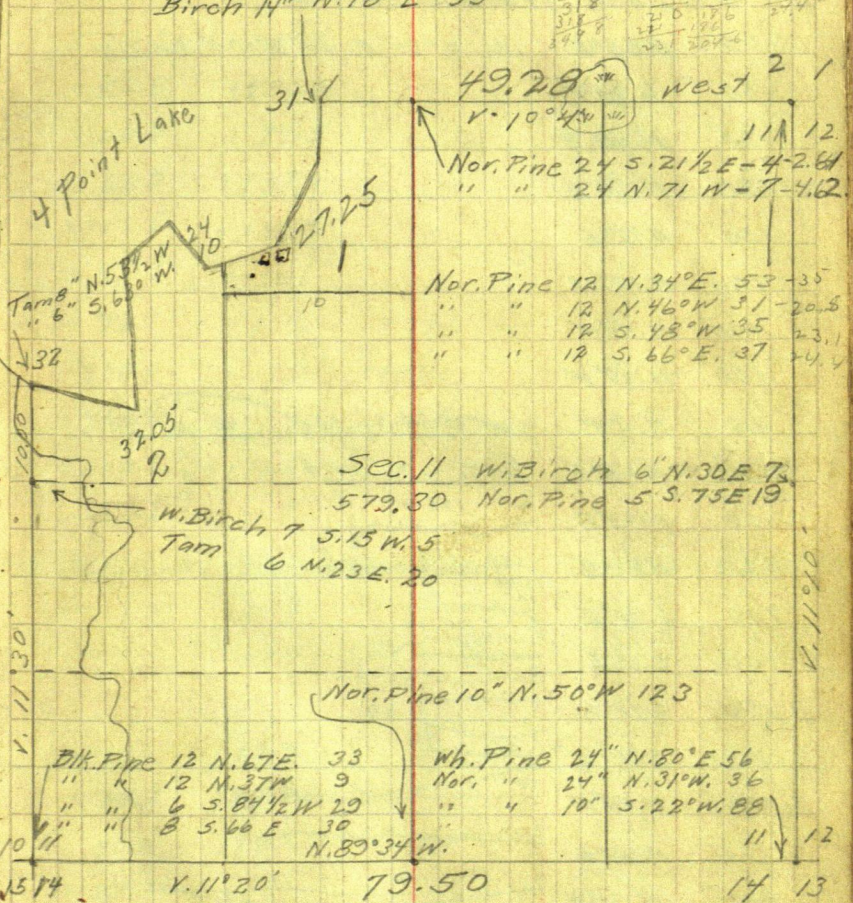 Birch 14" N.70 E 33
31
49.28 west 2 1
V. 10°4
11 12
4 Point Lake
Nor. Pine 24 S.21½E-4-2.64
" " 24 N.71 W-7-4.62
27.25
24
10
1
10
Nor. Pine 12 N.34°E. 53-35
" " 12 N.46°W 31-20.5
" " 12 S.48°W 35 23.1
" " 12 S.66°E. 37 24.4
Tam 8" N.53½W
" 6" S.63° W.
32
10.50
32.05
2
Sec. 11 W. Birch 6" N.30E 7
579.30 Nor. Pine 5 S.75E 19
W. Birch 7 S.15 W. 5
Tam 6 N.23E. 20
V. 11°30'
V. 11°10'
Nor. Pine 10" N.50°W 123
Blk. Pine 12 N.67E. 33
" " 12 N.37W 9
" " 6 S.84½W 29
" " 8 S.66 E 30
Wh. Pine 24" N.80°E 56
Nor. " 24" N.31°W. 36
" " 10" S.22°W. 88
10 11
N.89°34'W.
11 12
15 14
V. 11°20'
79.50
14 13